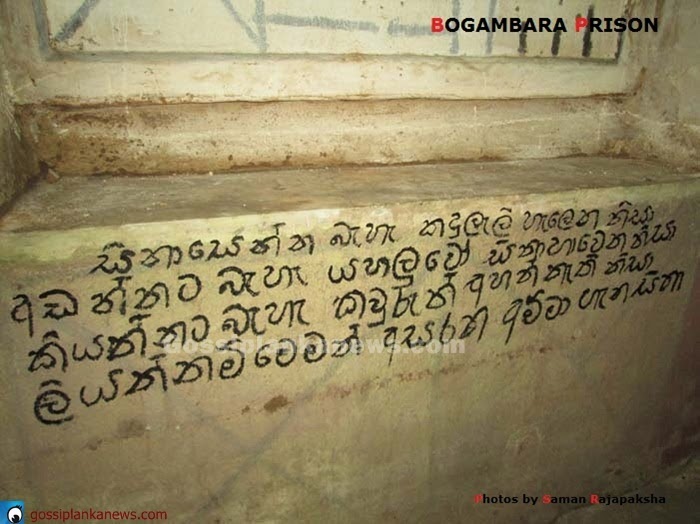 BOGAMBARA PRISON
සිනාසෙන්න බැහැ කදුලැලි හැලෙන නිසා
අඩන්නට බැහැ යහලුවෝ සිනාහවෙන නිසා
කියන්නට බැහැ කවුරුත් අහන් නැති නිසා
ලියන්නම මෙමත් අසරන අම්මා ගැන සිතා
gossiplankanews.com
Photos by Saman Rajapaksha
gossiplankanews.com